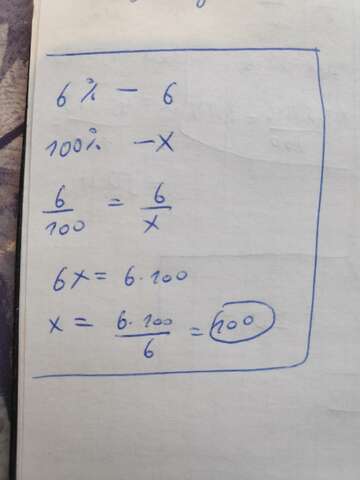 6% - 6
100% - x
6/100 = 6/x
6x = 6·100
x = 6·100/6 = 100